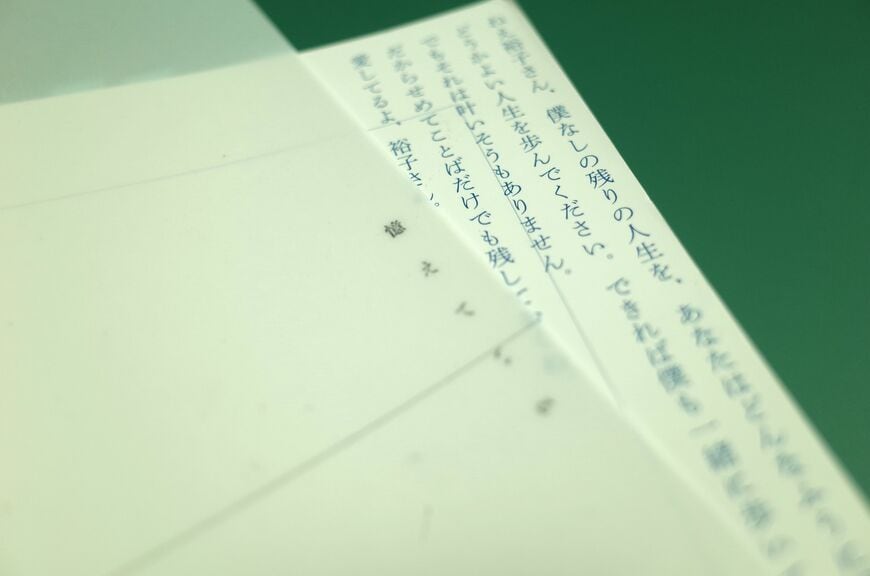 ねえ裕子さん、僕なしの残りの人生を、あなたはどんなふうに
どうかよい人生を歩んでください。できれば僕も一緒に歩いて
でもそれは叶いそうもありません。
だからせめてことばだけでも残し
愛してるよ、裕子さん。
憶えて